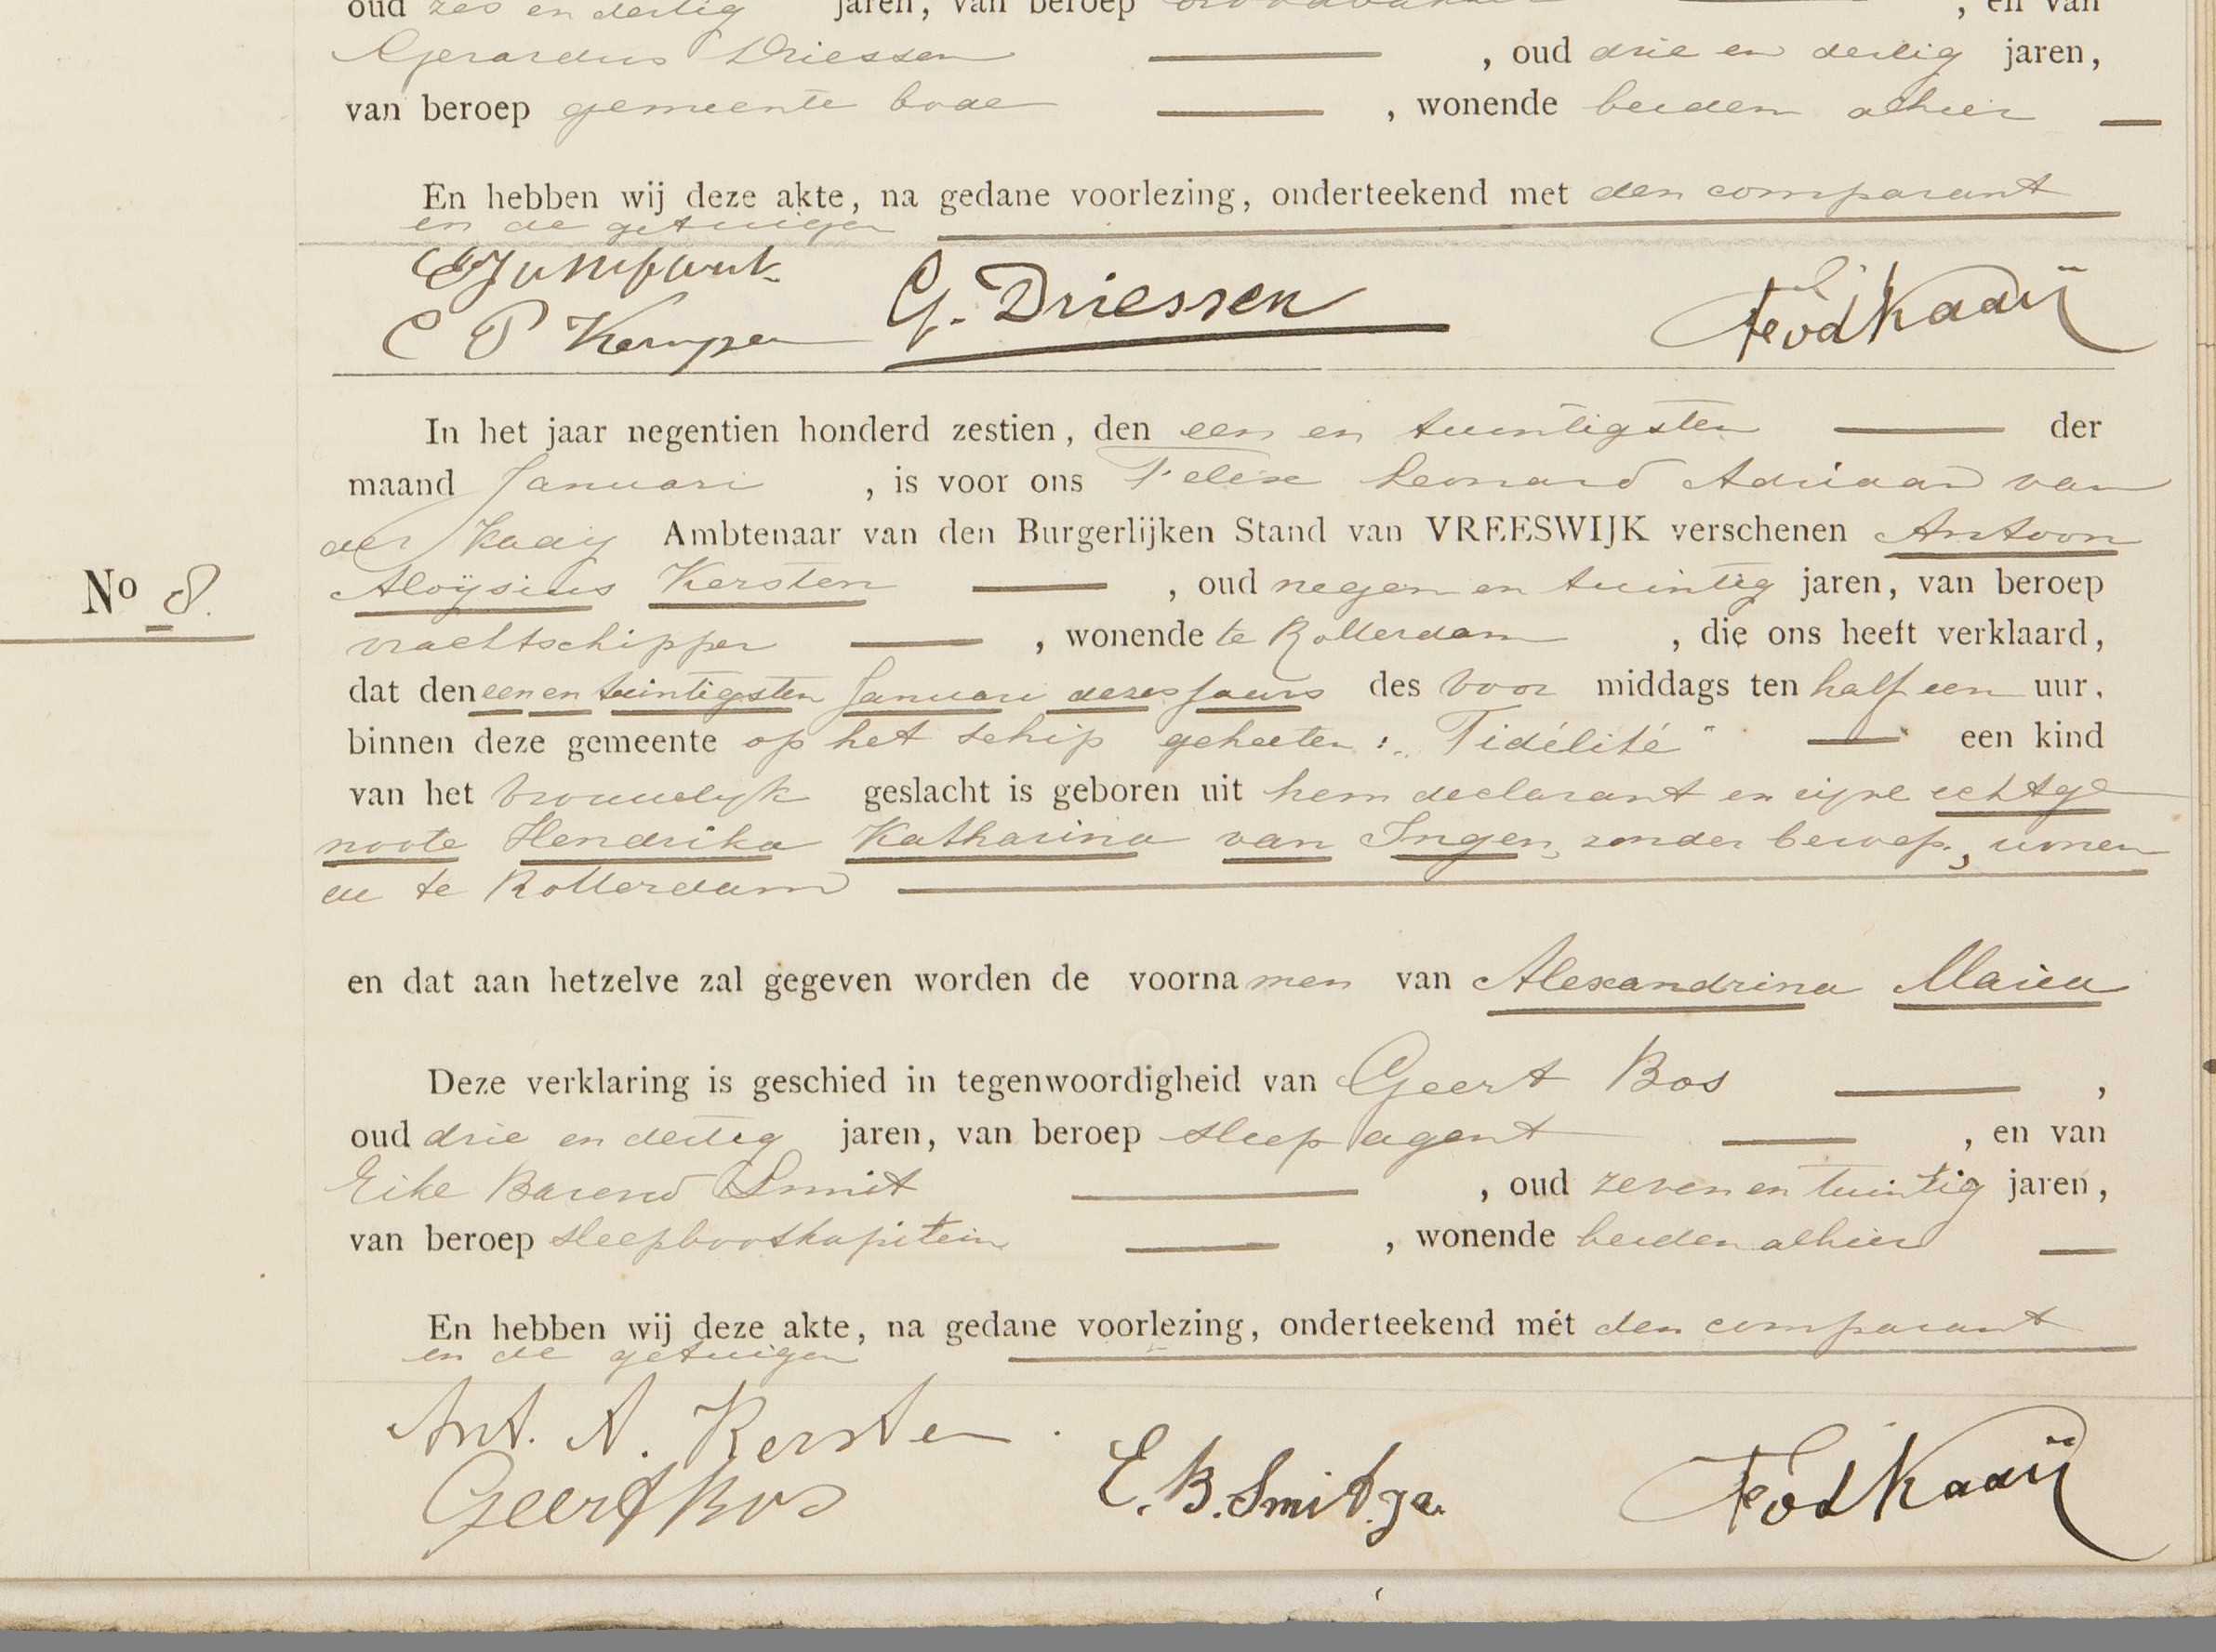 oud zes en dertig jaren, van beroep , en van
Gerardus Driessen , oud drie en dertig jaren,
van beroep gemeente bode , wonende beiden alhier
En hebben wij deze akte, na gedane voorlezing, onderteekend met den comparant
en de getuigen
C P Kemper G. Driessen FvdKaaij
In het jaar negentien honderd zestien, den een en twintigsten der
maand Januari , is voor ons Felix Leonard Adriaan van
der Kaaij Ambtenaar van den Burgerlijken Stand van VREESWIJK verschenen Antoon
No 8. Aloÿsius Kersten , oud negen en twintig jaren, van beroep
vrachtschipper , wonende te Rotterdam , die ons heeft verklaard,
dat den een en twintigsten Januari dezes jaars des voor middags ten half een uur,
binnen deze gemeente op het schip geheeten: „Fidélité" een kind
van het vrouwelijk geslacht is geboren uit hem declarant en zijne echtge
noote Hendrika Katharina van Ingen, zonder beroep, wonen
de te Rotterdam
en dat aan hetzelve zal gegeven worden de voornamen van Alexandrina Maria
Deze verklaring is geschied in tegenwoordigheid van Geert Bos ,
oud drie en dertig jaren, van beroep sleepagent , en van
Eike Barend Smit , oud zeven en twintig jaren,
van beroep sleepbootkapitein , wonende beiden alhier
En hebben wij deze akte, na gedane voorlezing, onderteekend met den comparant
en de getuigen
Ant. A. Kersten.
Geert Bos E. B. Smit.gz. FvdKaaij